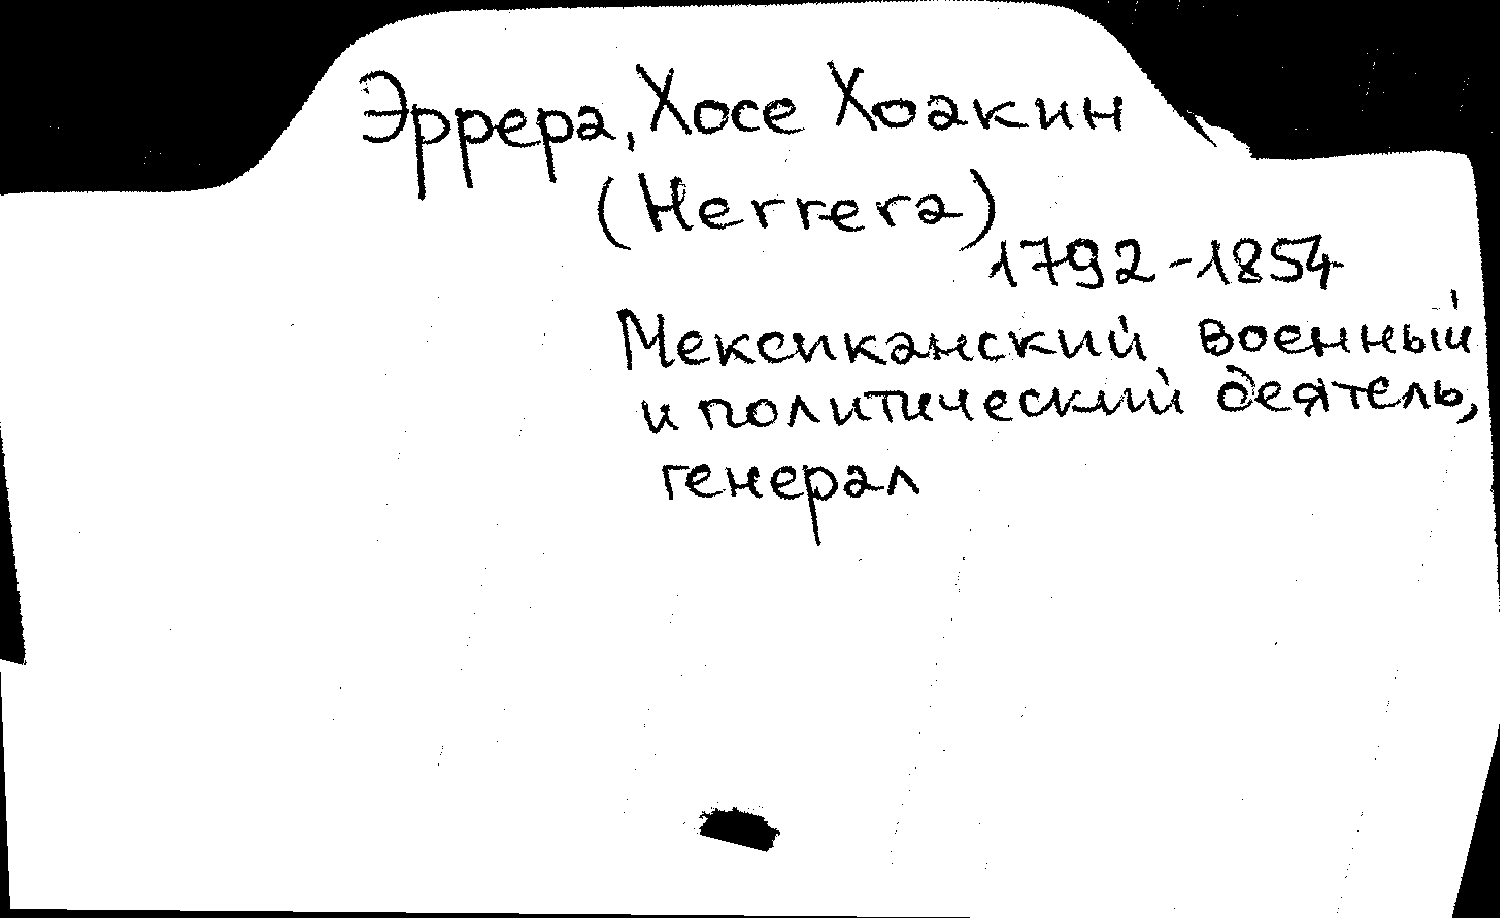 Эррера, Хосе Хоакин
(Herrera)
1792-1854
Мексиканский военный
и политический деятель,
генерал